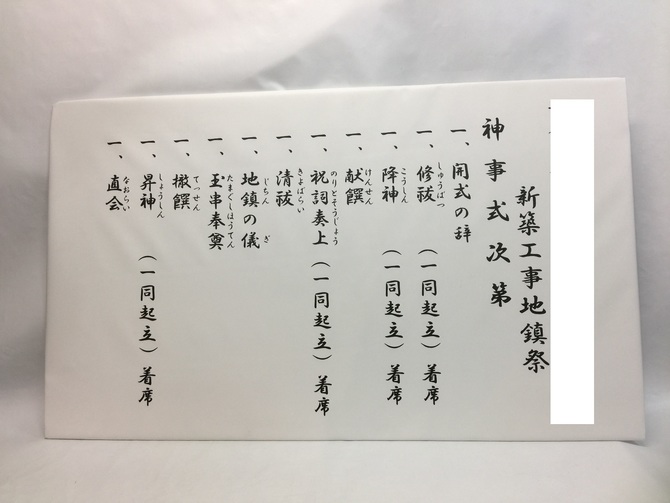 新築工事地鎮祭
神事式次第
一、開式の辞
一、修祓（一同起立）着席
しゅうばつ
一、降神（一同起立）着席
こうしん
一、献饌
けんせん
一、祝詞奏上（一同起立）着席
のりとそうじょう
一、清祓
きよばらい
一、地鎮の儀
じちん ぎ
一、玉串奉奠
たまぐしほうてん
一、撤饌
てっせん
一、昇神（一同起立）着席
しょうしん
一、直会
なおらい